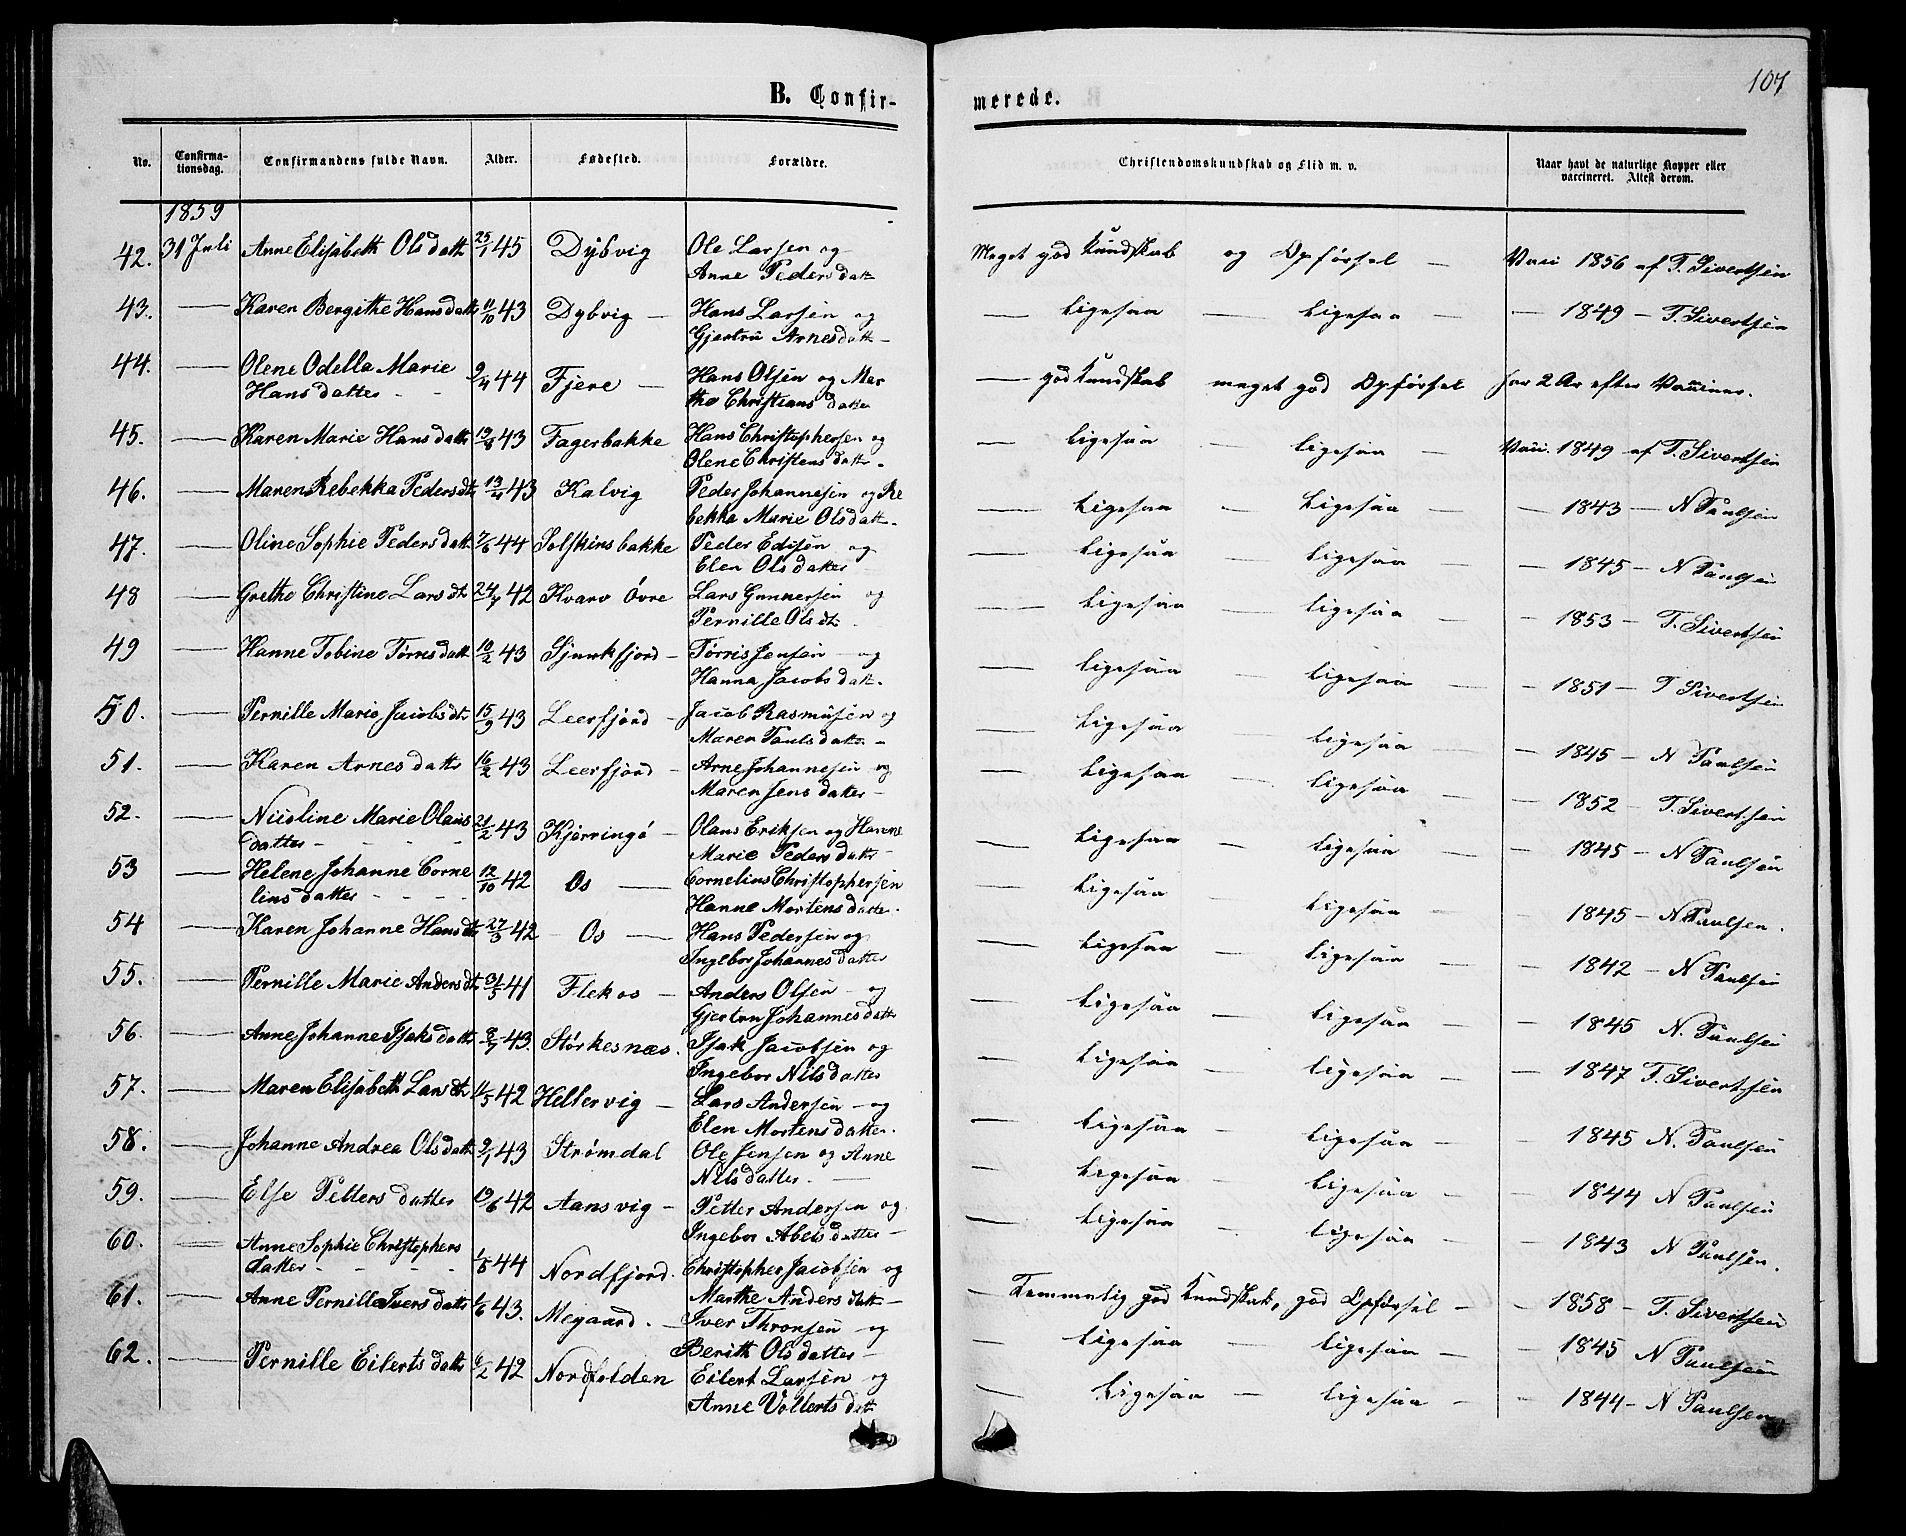 107
B. Confir-
merede.
No.
Confirma-
tionsdag.
Confirmandens fulde Navn.
Alder.
Fødested.
Forældre.
Christendomskundskab og Flid m. v.
Naar havt de naturlige Kopper eller
vaccineret. Attest derom.
1859
42. 31 Juli Anne Elisabeth Olsdatt 25/1 45 Dybvig Ole Larsen og
Anne Pedersdatt
Meget god Kundskab og Opførsel — Vacc 1856 af T. Sivertsen
43. — Karen Bergithe Hansdatt 11/10 43 Dybvig — Hans Larsen og
Gjertru Arnesdatt —
— Ligesaa — Ligesaa — — 1849 — T. Sivertsen
44. — Olene Odella Marie
Hansdatter 9/4 44 Fjere — Hans Olsen og Mar
tha Christiansdatter
— god Kundskab meget god Opførsel for 2 Ar efter Vaccines.
45. — Karen Marie Hansdatt 43 Fagerbakke Hans Christophersen og
Olene Christensdatter
— Ligesaa — Ligesaa — Vacc. 1849 af T. Sivertsen
46. — Maren Rebekka Pedersdt 13/4 43 Kalvig Peder Johannesen og Re
bekka Marie Olsdatt
— Ligesaa — Ligesaa — — 1843 — N Paulsen
47. — Oline Sophie Pedersdatt 7/6 44 Solskinsbakke Peder Edisen og
Elen Olsdatter
— Ligesaa — Ligesaa — — 1845 — N Paulsen
48 — Grethe Christine Larsdt 24/7 42 Kvarv Øvre Lars Gunnersen og
Pernille Olsdt.
— Ligesaa — Ligesaa — — 1853 — T. Sivertsen
49 — Hanne Tobine Tørrisdatt 10/2 43 Sjunkfjord — Tørris Jensen — og
Hanna Jacobsdatt.
— Ligesaa — Ligesaa — — 1851 — T Sivertsen
50. — Pernille Marie Jacobsdt 15/9 43 Leerfjord — Jacob Rasmusen og
Maren Paulsdatter —
— Ligesaa — Ligesaa — — 1845 — N Paulsen
51. — Karen Arnesdatter 16/2 43 Leerfjord — Arne Johannesen og
Maren Jensdatter —
— Ligesaa — Ligesaa — — 1852 — T. Sivertsen
52. Nicoline Marie Olaus
datter — 21/2 43 Kjerringø — Olaus Eriksen og Hanne
Marie Pedersdatter
— Ligesaa — Ligesaa — — 1845 — N Paulsen
53 — Helene Johanne Corne
liusdatter 12/10 42 Os — Cornelius Christophersen
Hanne Mortensdatter.
— Ligesaa — Ligesaa — — 1845 — N Paulsen.
54 — Karen Johanne Hansdt 27/5 42 — Os — Hans Pedersen og
Ingebor Johannesdatter
— Ligesaa — Ligesaa — — 1842 — N Paulsen
55. — Pernille Marie Andersdt 31/5 41 Flekos — Anders Olsen — og
Gjertru Johannesdatt
— Ligesaa — Ligesaa — — 1845 N. Paulsen
56. — Anne Johanne Isaksdatt 8/7 43. Størkesnæs. Isak Jacobsen og
Ingebor Nilsdatter
— Ligesaa — Ligesaa — — 1847 T. Sivertsen
57. — Maren Elisabeth Larsdt 11/5 42 Hellervig — Lars Andersen — og
Elen Mortensdatter.
— Ligesaa — Ligesaa — — 1845 N. Paulsen
58. — Johanne Andrea Olsdatt 9/1 43 Strømdal Ole Jensen og Anne
Nilsdatter. —
— Ligesaa — Ligesaa — — 1844 N Paulsen
59. — Else Pettersdatter 19/6 42 Aansvig — Petter Andersen og
Ingebor Abelsdatter —
— Ligesaa — Ligesaa — — 1843 N Paulsen.
60. — Anne Sophie Christophers
datter 1/5 44 Nordfjord. Christopher Jacobsen og
Marthe Andersdatt —
— Temmelig god Kundskab, god Opførsel — — 1858 — T. Sivertsen
61. — Anne Pernille Iversdatt 1/6 43. Megaard. — Iver Thronsen og
Berith Olsdatter —
— Ligesaa — Ligesaa — — 1845 N Paulsen
62. — Pernille Eilertsdatt 6/2 42 Nordfolden Eilert Larsen og
Anne Vollertsdatt
— Ligesaa — Ligesaa — — 1844 — N Paulsen